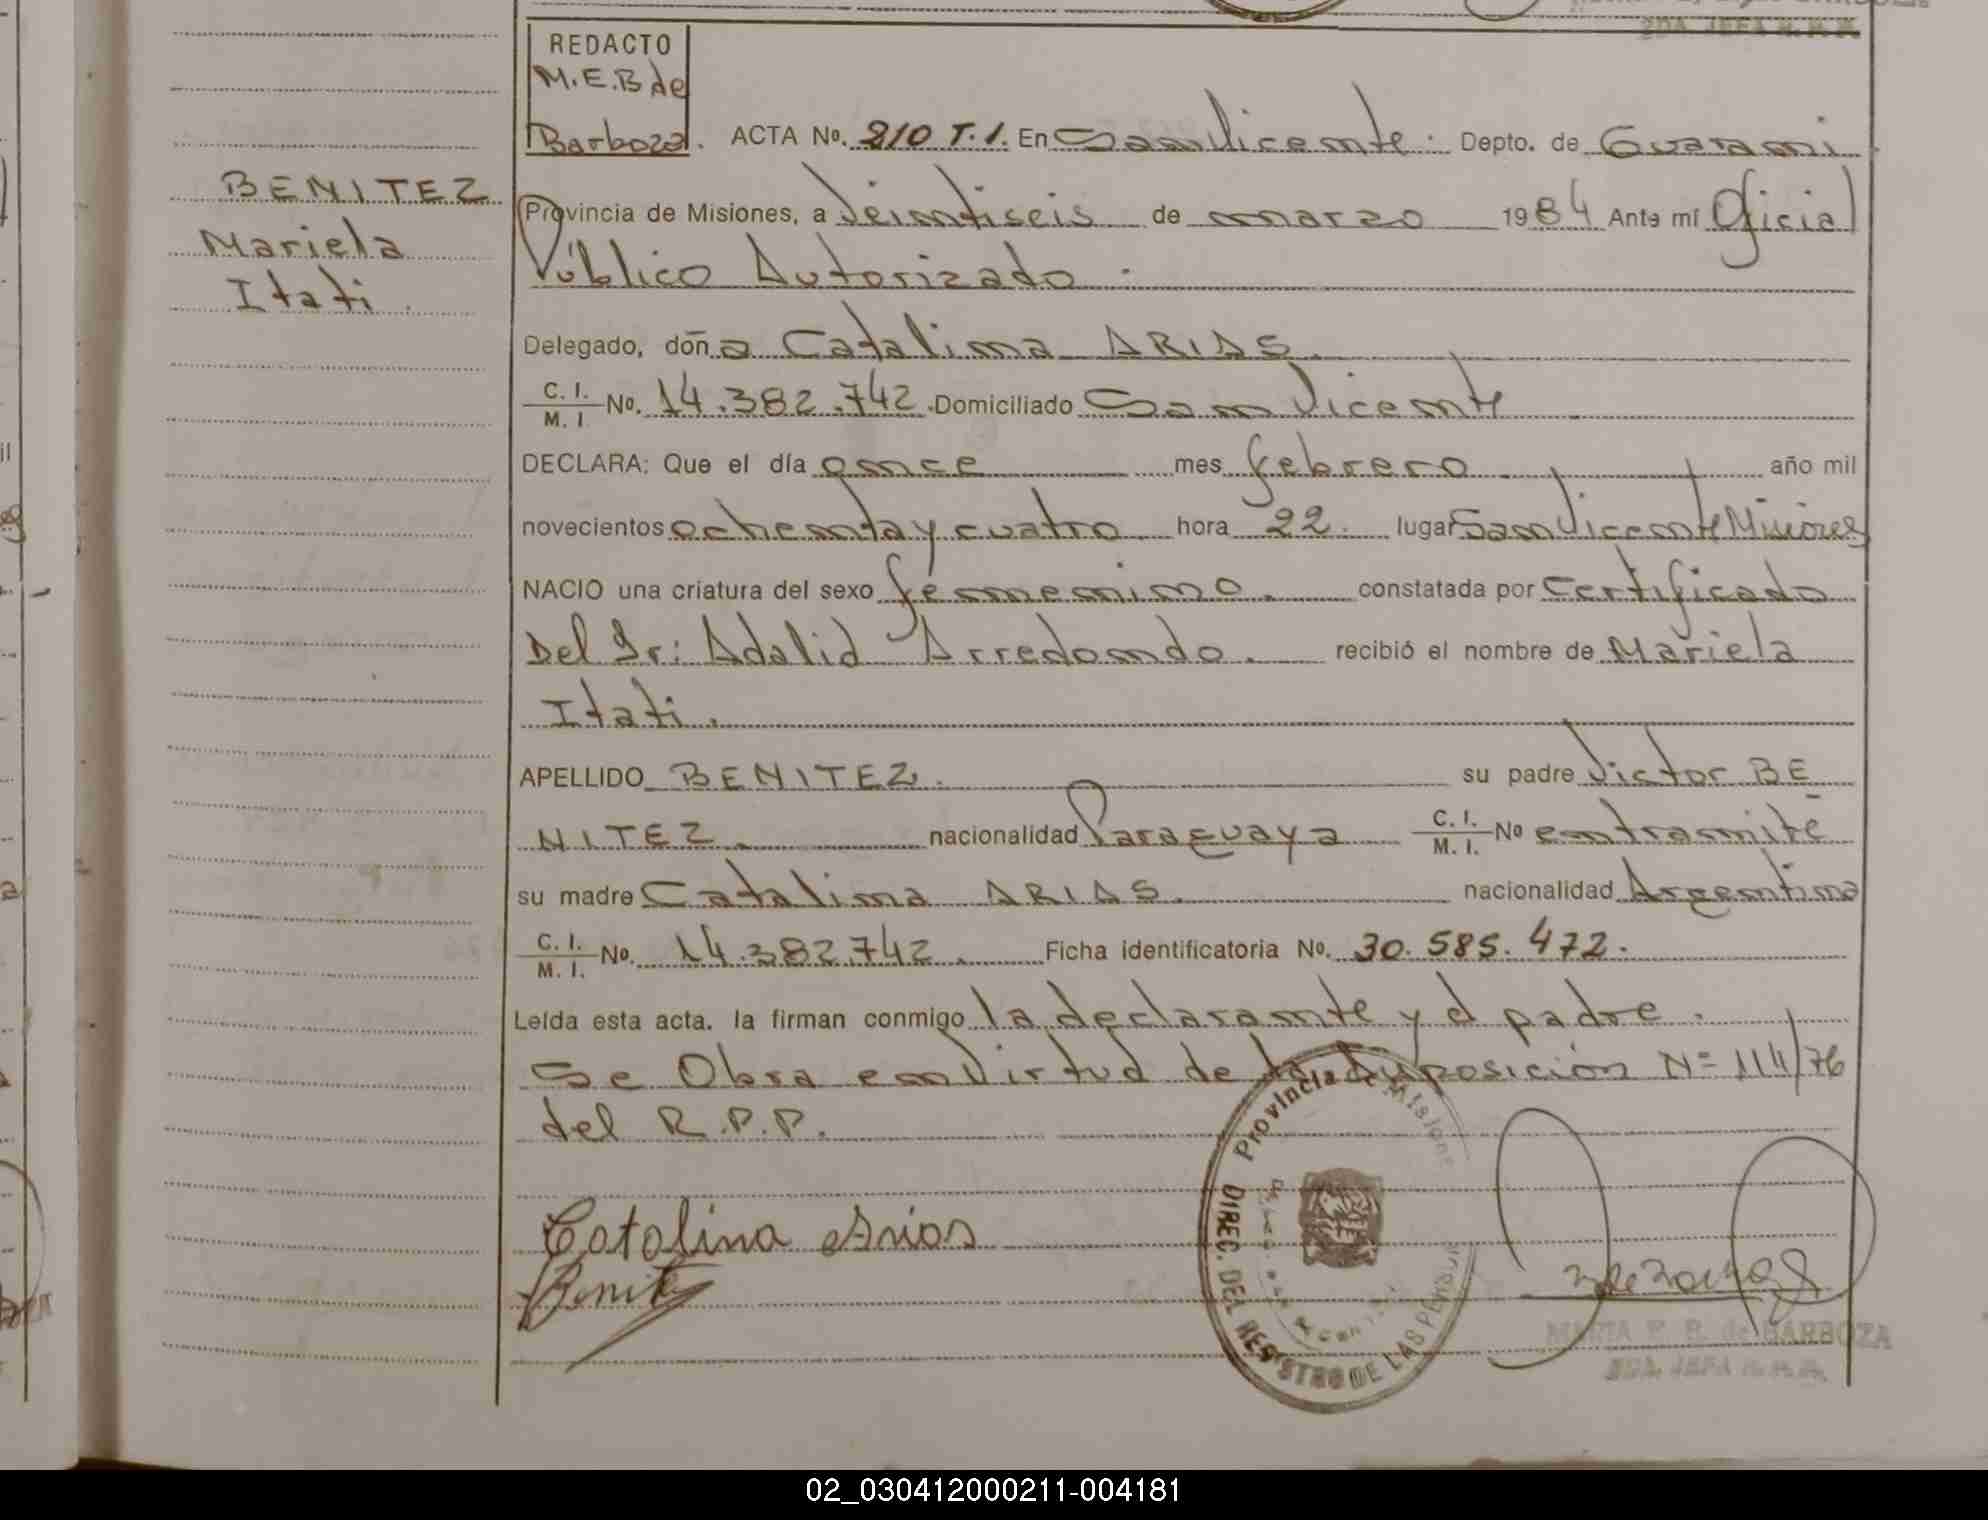 REDACTO
M.E.B de
Barboza.
ACTA No. 210 T.1. En San Vicente. Depto. de Guarani
BENITEZ
Mariela
Itati.
Provincia de Misiones, a Veintiseis de marzo 1984 Ante mí Oficial
Público Autorizado.
Delegado, doña Catalina ARIAS.
C. I. / M. I. No. 14.382.742. Domiciliado San Vicente
DECLARA: Que el día once mes febrero año mil
novecientos ochenta y cuatro hora 22. lugar San Vicente Misiones
NACIO una criatura del sexo femenino. constatada por certificado
Del Dr: Adalid Arredondo. recibió el nombre de Mariela
Itati.
APELLIDO BENITEZ. su padre Victor BE
NITEZ. nacionalidad Paraguaya C. I. / M. I. No en tramite
su madre Catalina ARIAS. nacionalidad Argentina
C. I. / M. I. No. 14.382.742. Ficha identificatoria No. 30.585.472.
Leída esta acta. la firman conmigo la declarante y el padre.
Se Obra en Virtud de la Disposición N= 114/76
del R.P.P.
Provincia de Misiones
DIREC. DEL REGISTRO DE LAS PERSON
Catalina Arias
Benitez
MARIA E. B. de BARBOZA
2DA. JEFA
02_030412000211-004181